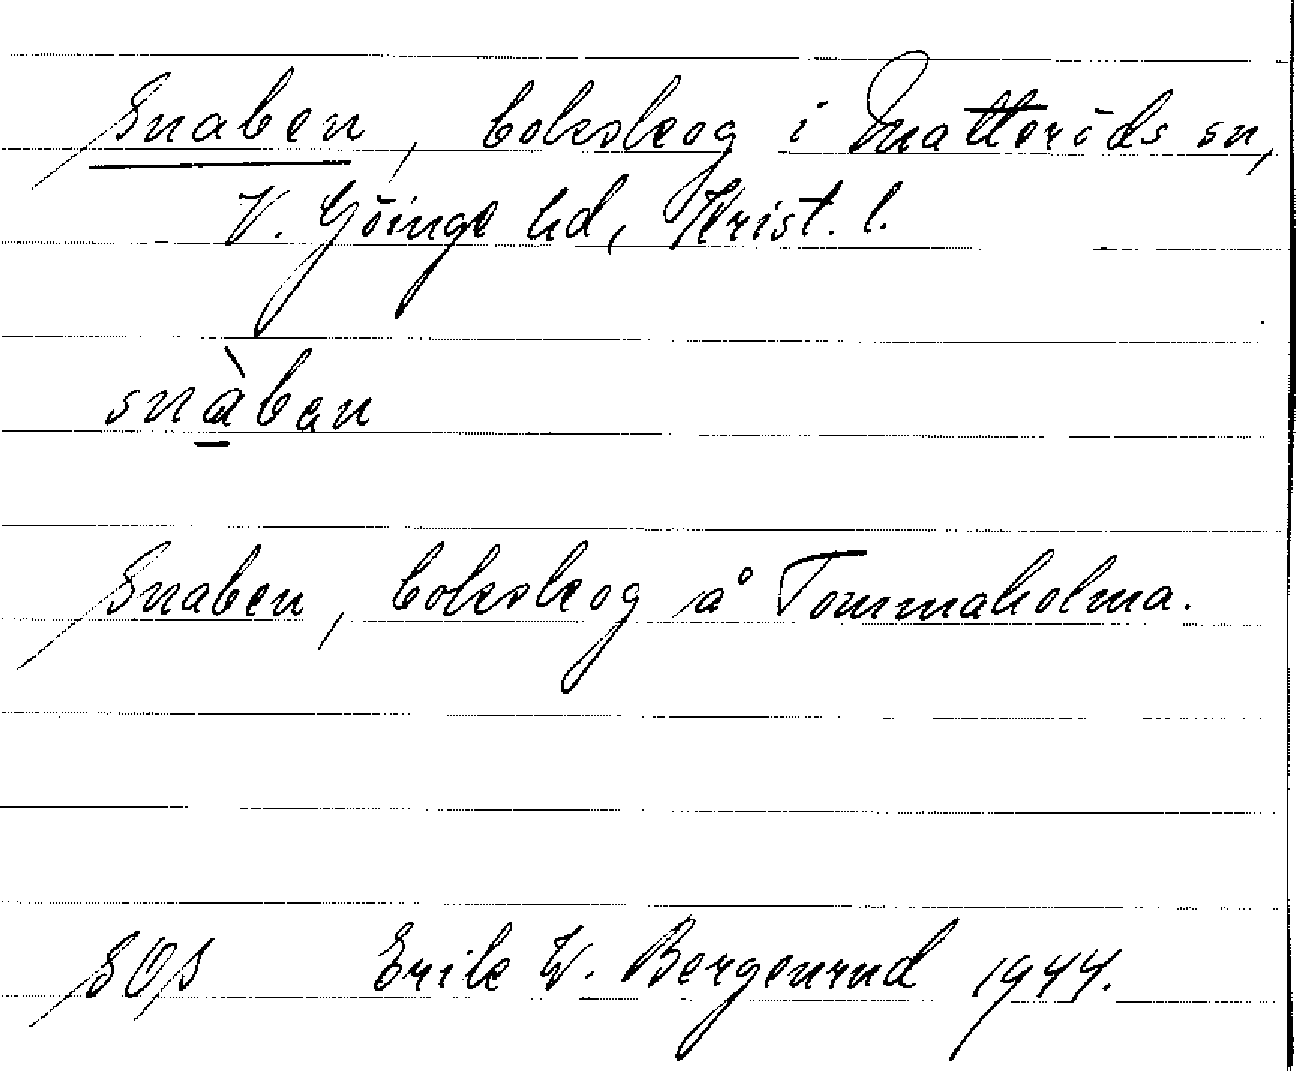 Snaben, bokskog i Matteröds sn,
V. Göinge hd, Krist. l.
snàban
Snaben, bokskog å Tommaholma.
SOS Erik W. Bergenrud 1944.